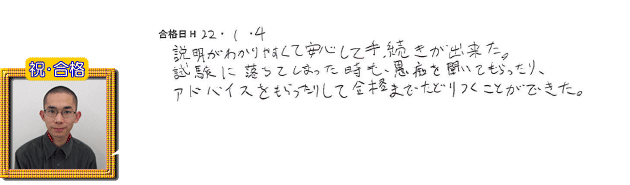 合格日 H 22・1・4
説明がわかりやすくて安心して手続きが出来た。
試験に落ちてしまった時も、愚痴を聞いてもらったり、
アドバイスをもらったりして合格までたどりつくことができた。
祝・合格